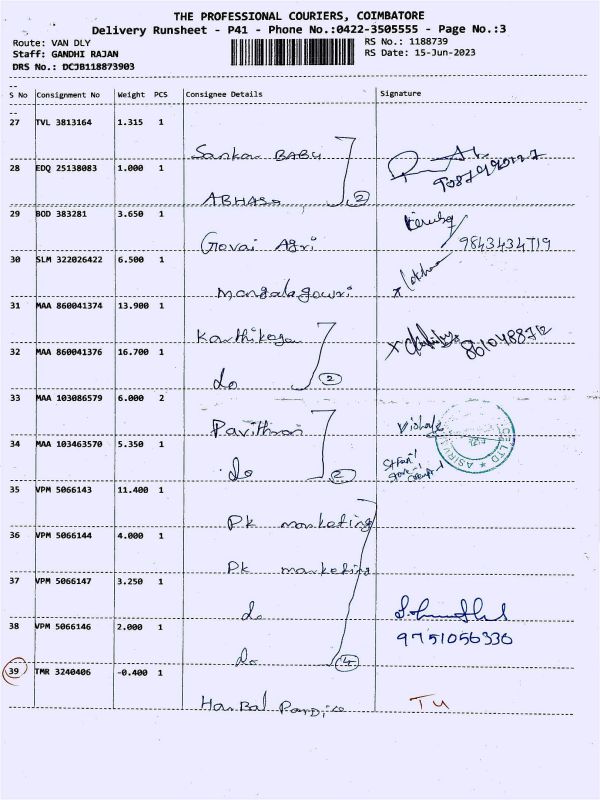 THE PROFESSIONAL COURIERS, COIMBATORE
Delivery Runsheet - P41 - Phone No.:0422-3505555 - Page No.:3
Route: VAN DLY
RS No.: 1188739
Staff: GANDHI RAJAN
RS Date: 15-Jun-2023
DRS No.: DCJB118873903
S No Consignment No Weight PCS Consignee Details Signature
27 TVL 3813164 1.315 1
Sankar BABU
28 EDQ 25138083 1.000 1
ABHASA 2
29 BOD 383281 3.650 1
Govai Agri
9843434719
30 SLM 322026422 6.500 1
mangalagowri
31 MAA 860041374 13.900 1
Karthikeya
32 MAA 860041376 16.700 1
do 2
33 MAA 103086579 6.000 2
Pavithran
34 MAA 103463570 5.350 1
do 2
35 VPM 5066143 11.400 1
Pk marketing
36 VPM 5066144 4.000 1
Pk marketing
37 VPM 5066147 3.250 1
do
38 VPM 5066146 2.000 1
9751056336
do 4
39 TMR 3240406 -0.400 1